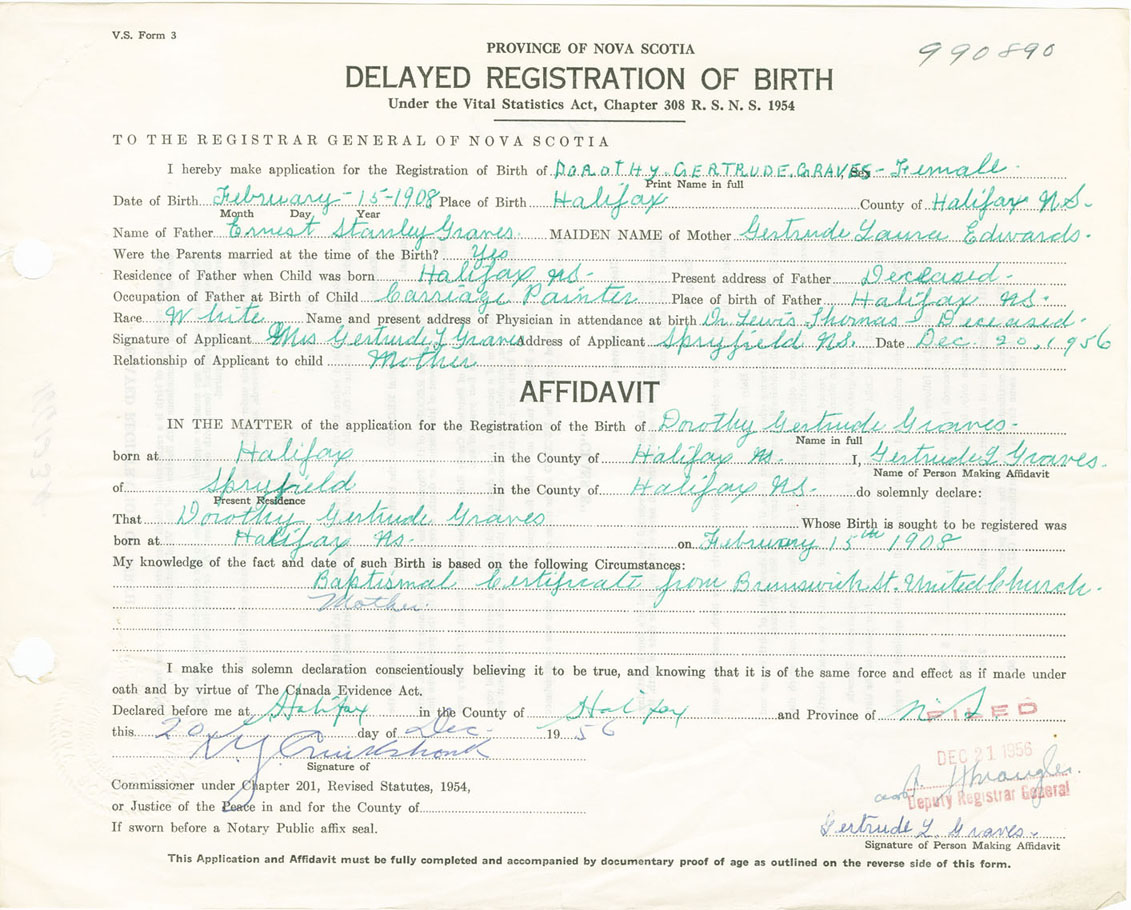 V.S. Form 3
990890
PROVINCE OF NOVA SCOTIA
DELAYED REGISTRATION OF BIRTH
Under the Vital Statistics Act, Chapter 308 R. S. N. S. 1954
TO THE REGISTRAR GENERAL OF NOVA SCOTIA
I hereby make application for the Registration of Birth of DOROTHY. GERTRUDE. GRAVES Sex - Female.
Print Name in full
Date of Birth February - 15 - 1908 Place of Birth Halifax County of Halifax N.S.
Month Day Year
Name of Father Ernest Stanley Graves. MAIDEN NAME of Mother Gertrude Laura Edwards.
Were the Parents married at the time of the Birth? Yes
Residence of Father when Child was born Halifax NS. Present address of Father Deceased.
Occupation of Father at Birth of Child Carriage Painter Place of birth of Father Halifax NS.
Race White Name and present address of Physician in attendance at birth Dr Lewis Thomas Deceased.
Signature of Applicant Mrs Gertrude L Graves Address of Applicant Spryfield NS. Date Dec. 20, 1956
Relationship of Applicant to child Mother
AFFIDAVIT
IN THE MATTER of the application for the Registration of the Birth of Dorothy Gertrude Graves.
Name in full
born at Halifax in the County of Halifax NS. I, Gertrude L Graves.
Name of Person Making Affidavit
of Spryfield in the County of Halifax NS. do solemnly declare:
Present Residence
That Dorothy Gertrude Graves Whose Birth is sought to be registered was
born at Halifax NS. on February 15th 1908
My knowledge of the fact and date of such Birth is based on the following Circumstances:
Baptismal Certificate from Brunswick St. United Church.
Mother.
I make this solemn declaration conscientiously believing it to be true, and knowing that it is of the same force and effect as if made under
oath and by virtue of The Canada Evidence Act.
Declared before me at Halifax in the County of Halifax and Province of N. S
FILED
this 20 day of Dec. 1956
DEC 21 1956
Signature of
Commissioner under Chapter 201, Revised Statutes, 1954,
Deputy Registrar General
or Justice of the Peace in and for the County of
Gertrude L. Graves.
If sworn before a Notary Public affix seal.
Signature of Person Making Affidavit
This Application and Affidavit must be fully completed and accompanied by documentary proof of age as outlined on the reverse side of this form.